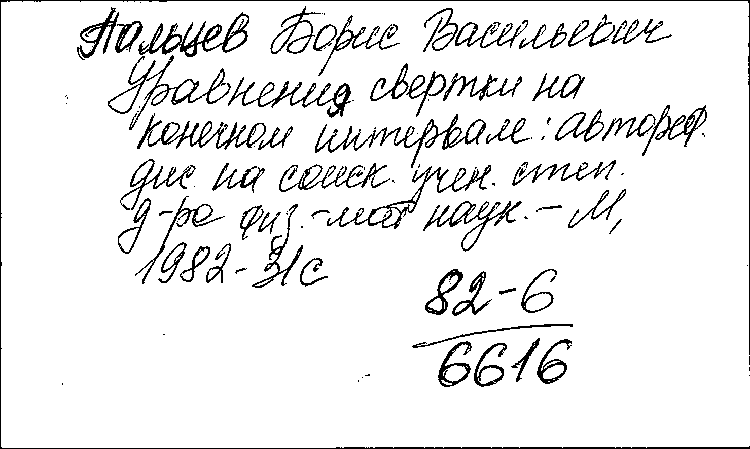 Пальцев Борис Васильевич
Уравнения свертки на
конечном интервале: автореф.
дис. на соиск. учен. степ.
д-ра физ.-мат наук. - М,
1982 - 31с
82-6
6616